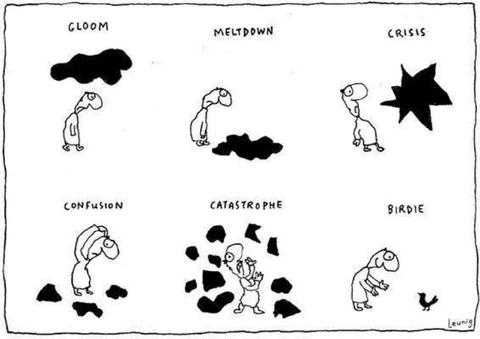 GLOOM
MELTDOWN
CRISIS
CONFUSION
CATASTROPHE
BIRDIE
Leunig